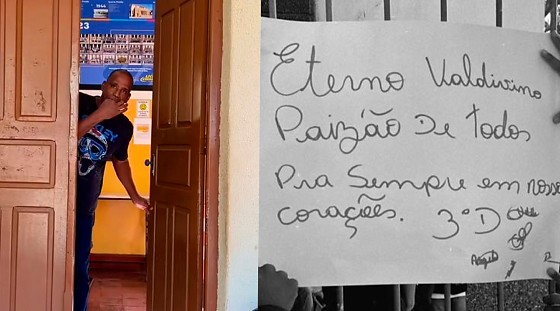 1944
23
Eterno Valdivino
Paizão De todos
Pra Sempre em nosso
corações. 3°D